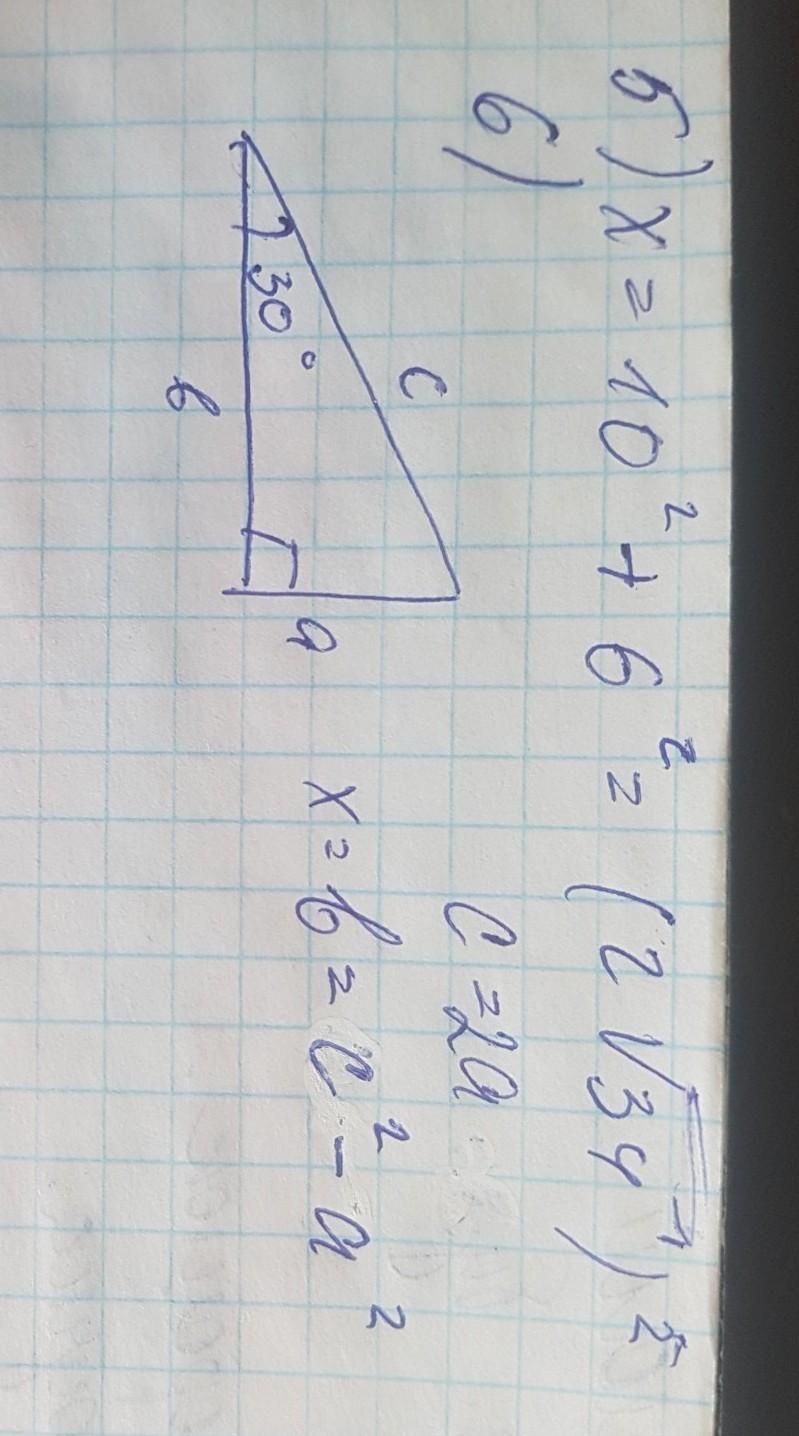 5) x = 10² + 6² = (2√34)²
6)
c
30°
b
a
c = 2a
x = b = c² - a²